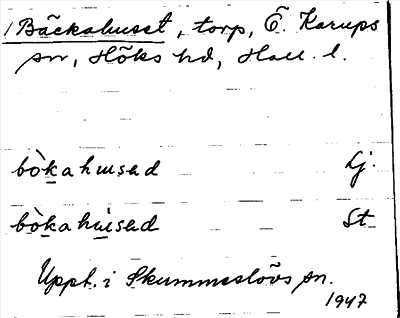 1 Bäckahuset, torp, Ö. Karups
sn, Höks hd, Hall. l.
bòkahusad Lj.
bòkahúsad St
Uppt. i Skummeslövs sn.
1947